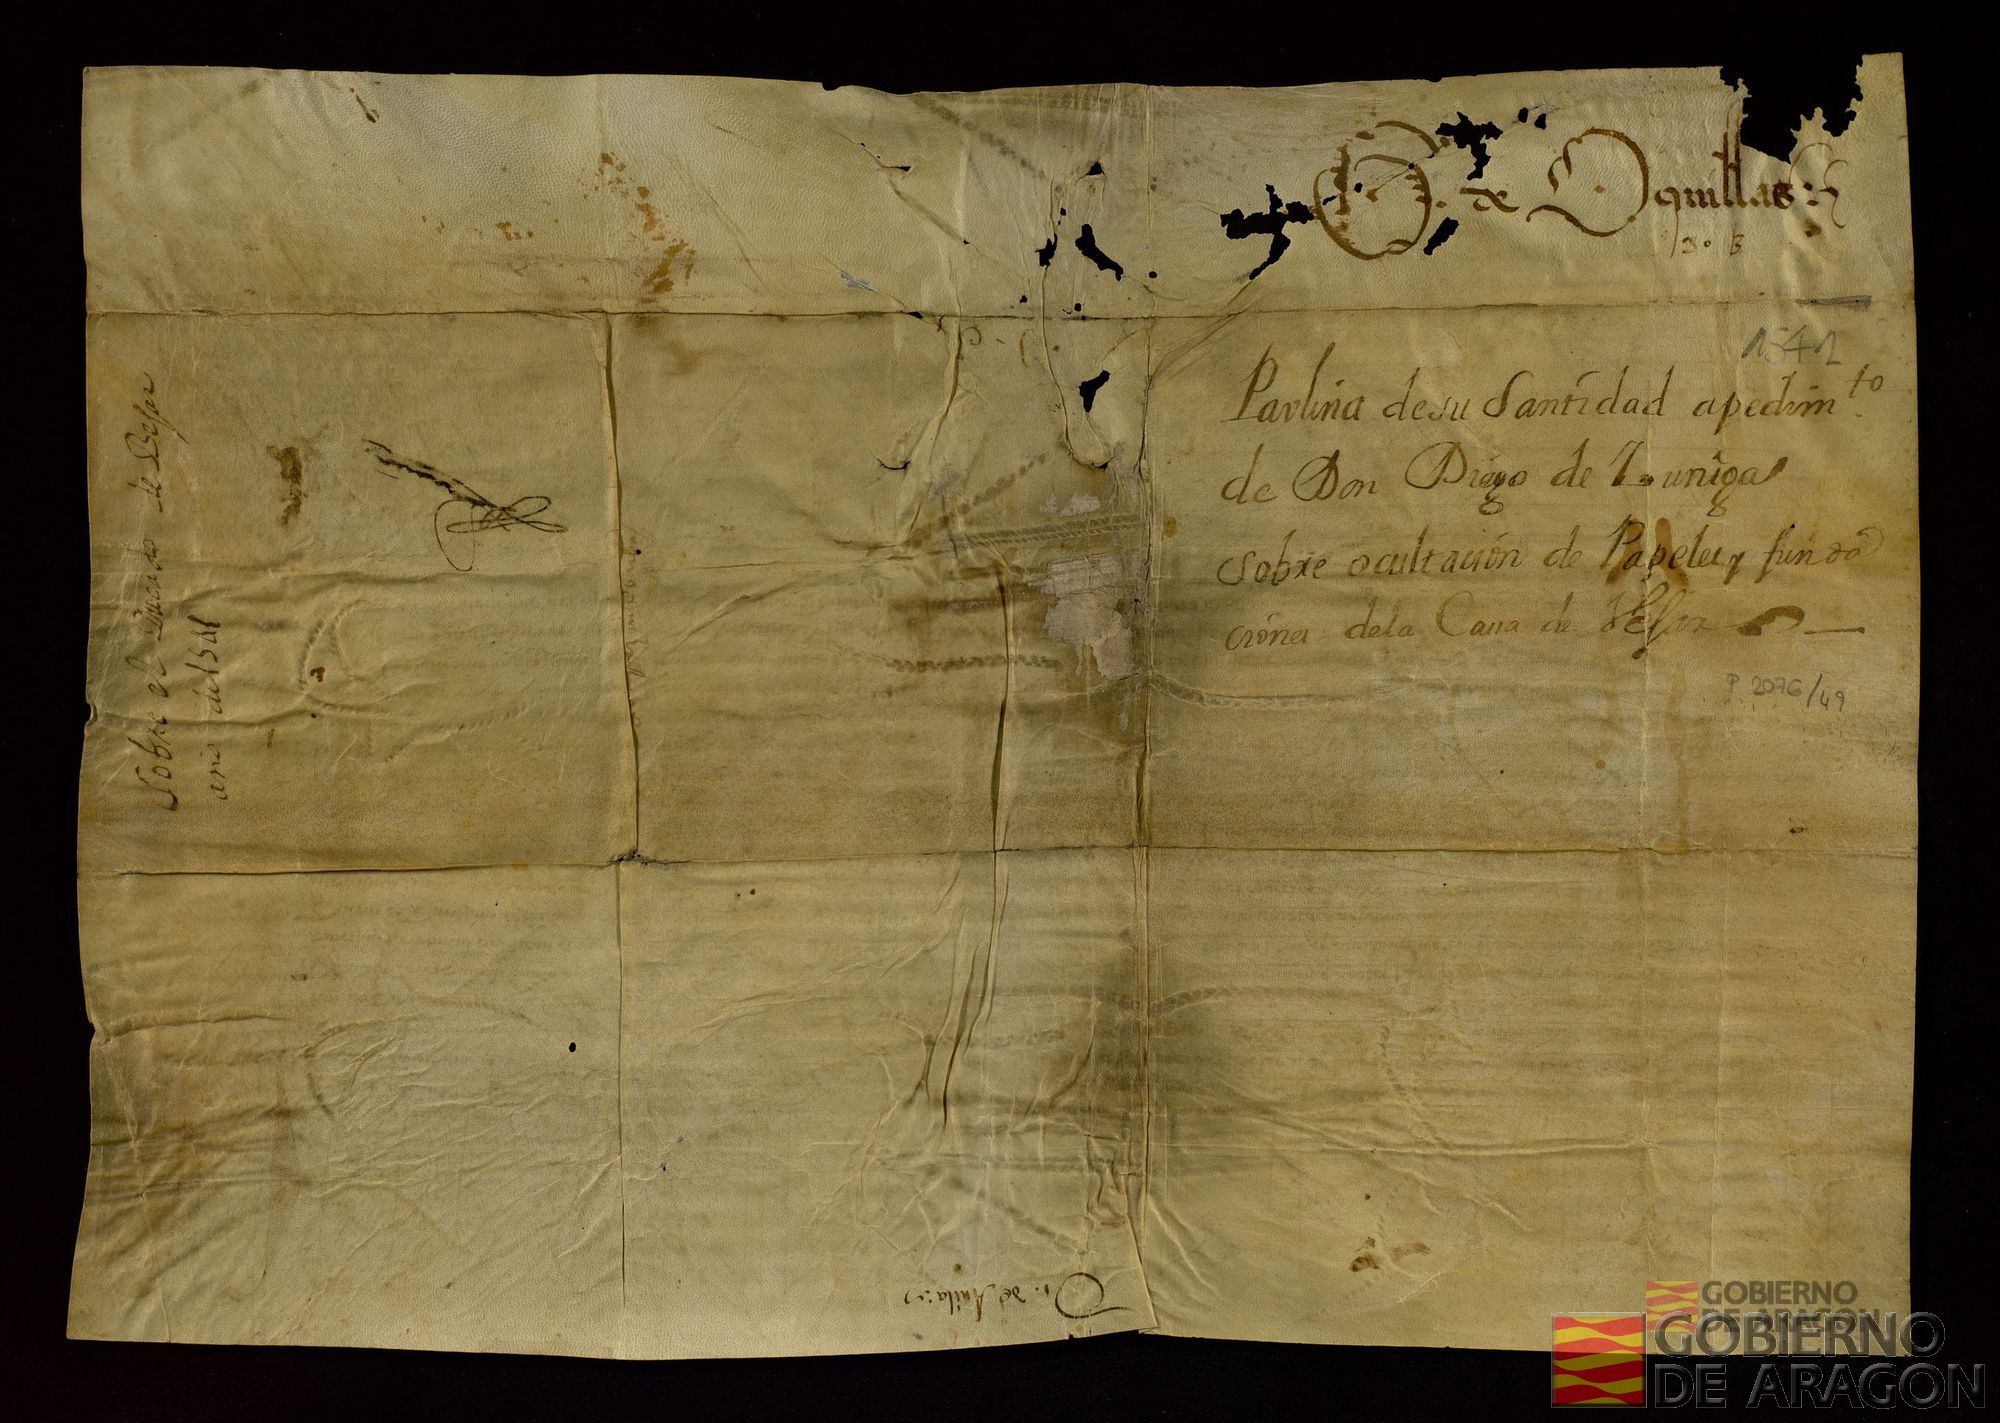 de Quillas
1541
Paulina de su Santidad a pedim.to
de Don Diego de Zuniga
sobre ocultación de Papeles y funda
ciones de la Casa de Vejar
P. 2076/49
Sobre el Ducado de Bejar
año de 1541
de Avila
GOBIERNO
DE ARAGON
GOBIERNO
DE ARAGON